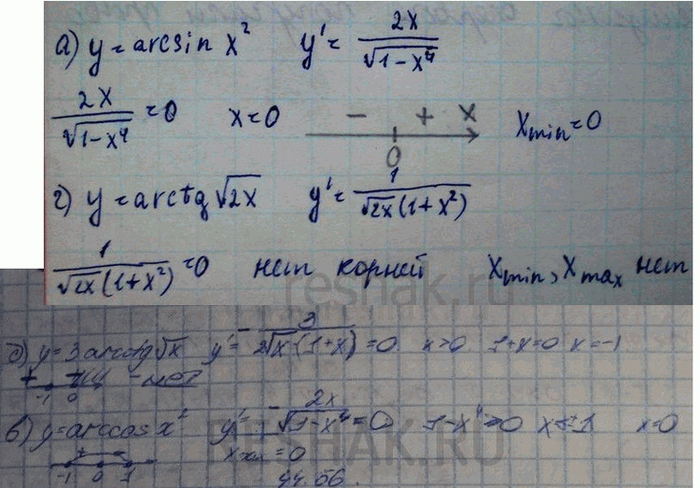 а) y = arcsin x²   y' = 2x/√(1-x⁴)
2x/√(1-x⁴) = 0   x=0   - + x   0   xmin=0
г) y = arctg √2x   y' = 1/(√2x(1+x²))
1/(√2x(1+x²)) = 0   нет корней   xmin, xmax нет
reshak.ru
y=3arcctg√x   y' = - 3/(2√x(1+x)) = 0   x>0   1+x=0   x=-1
-1 0 - нет
в) y=arccos x²   y' = - 2x/√(1-x⁴) = 0   1-x⁴   x=0
RESHAK.RU
-1 0 1   = 0
44.56.